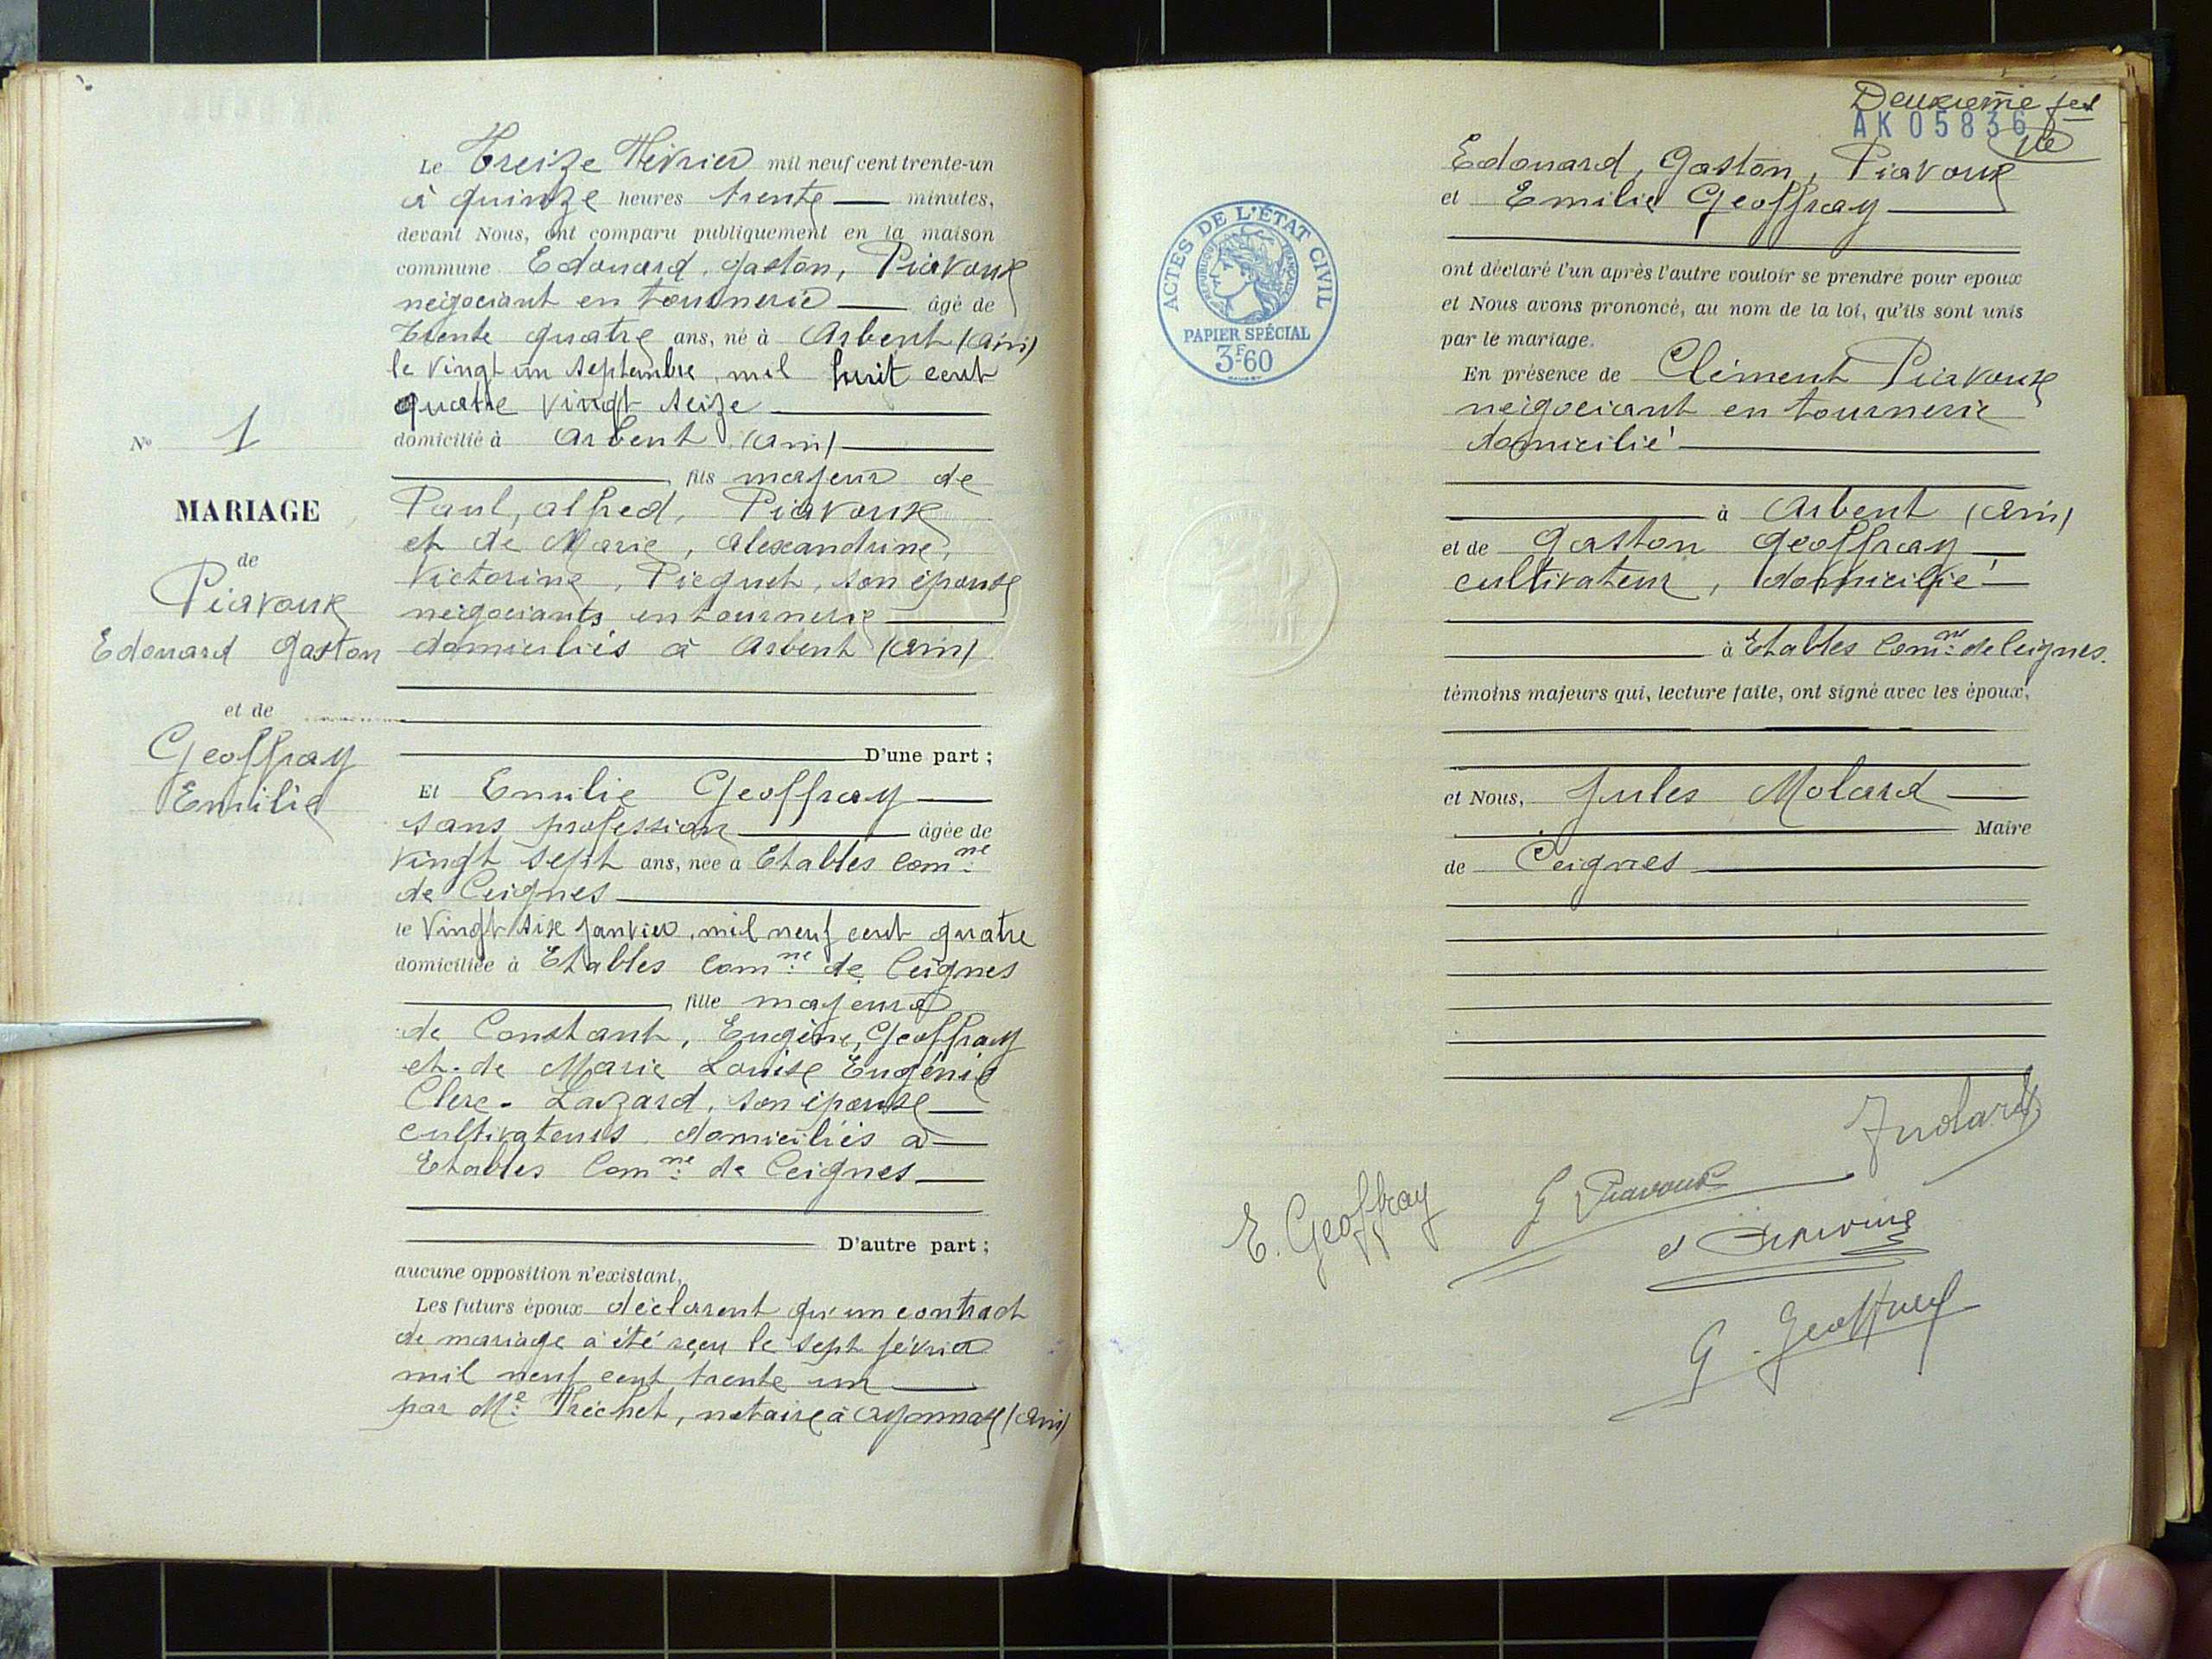 Le Treize Février mil neuf cent trente-un
à quinze heures trente minutes,
devant Nous, ont comparu publiquement en la maison
commune Edouard, Gaston, Piavoux
négociant en tournerie âgé de
trente quatre ans, né à Arbent (Ain)
le vingt un septembre, mil huit cent
quatre vingt seize
domicilié à Arbent (Ain)
fils majeur de
Paul, Alfred, Piavoux
et de Marie, Alexandrine,
Victorine, Picquet, son épouse
négociants en tournerie
domiciliés à Arbent (Ain)
D'une part ;
Et Emilie Geoffray
sans profession âgée de
vingt sept ans, née à Etables Comne
de Ceignes
le vingt six janvier, mil neuf cent quatre
domiciliée à Etables Comne de Ceignes
fille majeure
de Constant, Eugène, Geoffray
et de Marie Louise Eugénie
Clerc-Lazard, son épouse
cultivateurs domiciliés à
Etables Comne de Ceignes
D'autre part ;
aucune opposition n'existant,
Les futurs époux déclarent qu'un contract
de mariage a été reçu le sept février
mil neuf cent trente un
par Me Fréchet, notaire à Oyonnax (Ain)
No 1
MARIAGE
de
Piavoux
Edouard Gaston
et de
Geoffray
Emilie
Deuxième
AK05836
Edouard, Gaston, Piavoux
et Emilie Geoffray
ont déclaré l'un après l'autre vouloir se prendre pour époux
et Nous avons prononcé, au nom de la loi, qu'ils sont unis
par le mariage.
En présence de Clément Piavoux
négociant en tournerie
domicilié
à Arbent (Ain)
et de Gaston Geoffray
cultivateur, domicilié
à Etables Comne de Ceignes.
témoins majeurs qui, lecture faite, ont signé avec les époux,
et Nous, Jules Molard
Maire
de Ceignes
ACTES DE L'ÉTAT CIVIL
RÉPUBLIQUE FRANÇAISE
PAPIER SPÉCIAL
3F60
E. Geoffray
G Piavoux
G. Geoffray